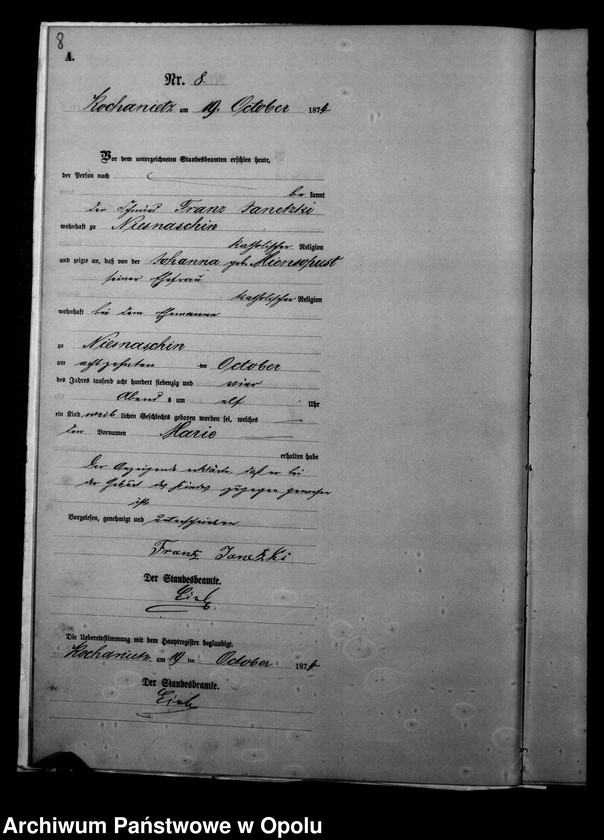 8
A.
Nr. 8.
Kochanietz am 19. October 1874
Vor dem unterzeichneten Standesbeamten erschien heute,
der Person nach
be kannt
der Schmied Franz Janetzki
wohnhaft zu Niesnaschin
katholischer Religion
und zeigte an, daß von der Johanna geb.
seiner Ehefrau
katholischer Religion
wohnhaft bei dem Ehemanne
zu Niesnaschin
am achtzehnten ten October
des Jahres tausend acht hundert siebenzig und vier
Abend s um elf Uhr
ein Kind weib lichen Geschlechts geboren worden sei, welches
den Vornamen Marie
erhalten habe
Der Anzeigende erklärte, daß er bei
der Geburt des Kindes zugegen gewesen
ist.
Vorgelesen, genehmigt und unterschrieben
Franz Janetzki
Der Standesbeamte.
Die Uebereinstimmung mit dem Hauptregister beglaubigt.
Kochanietz am 19 ten October 1874
Der Standesbeamte.
Archiwum Państwowe w Opolu